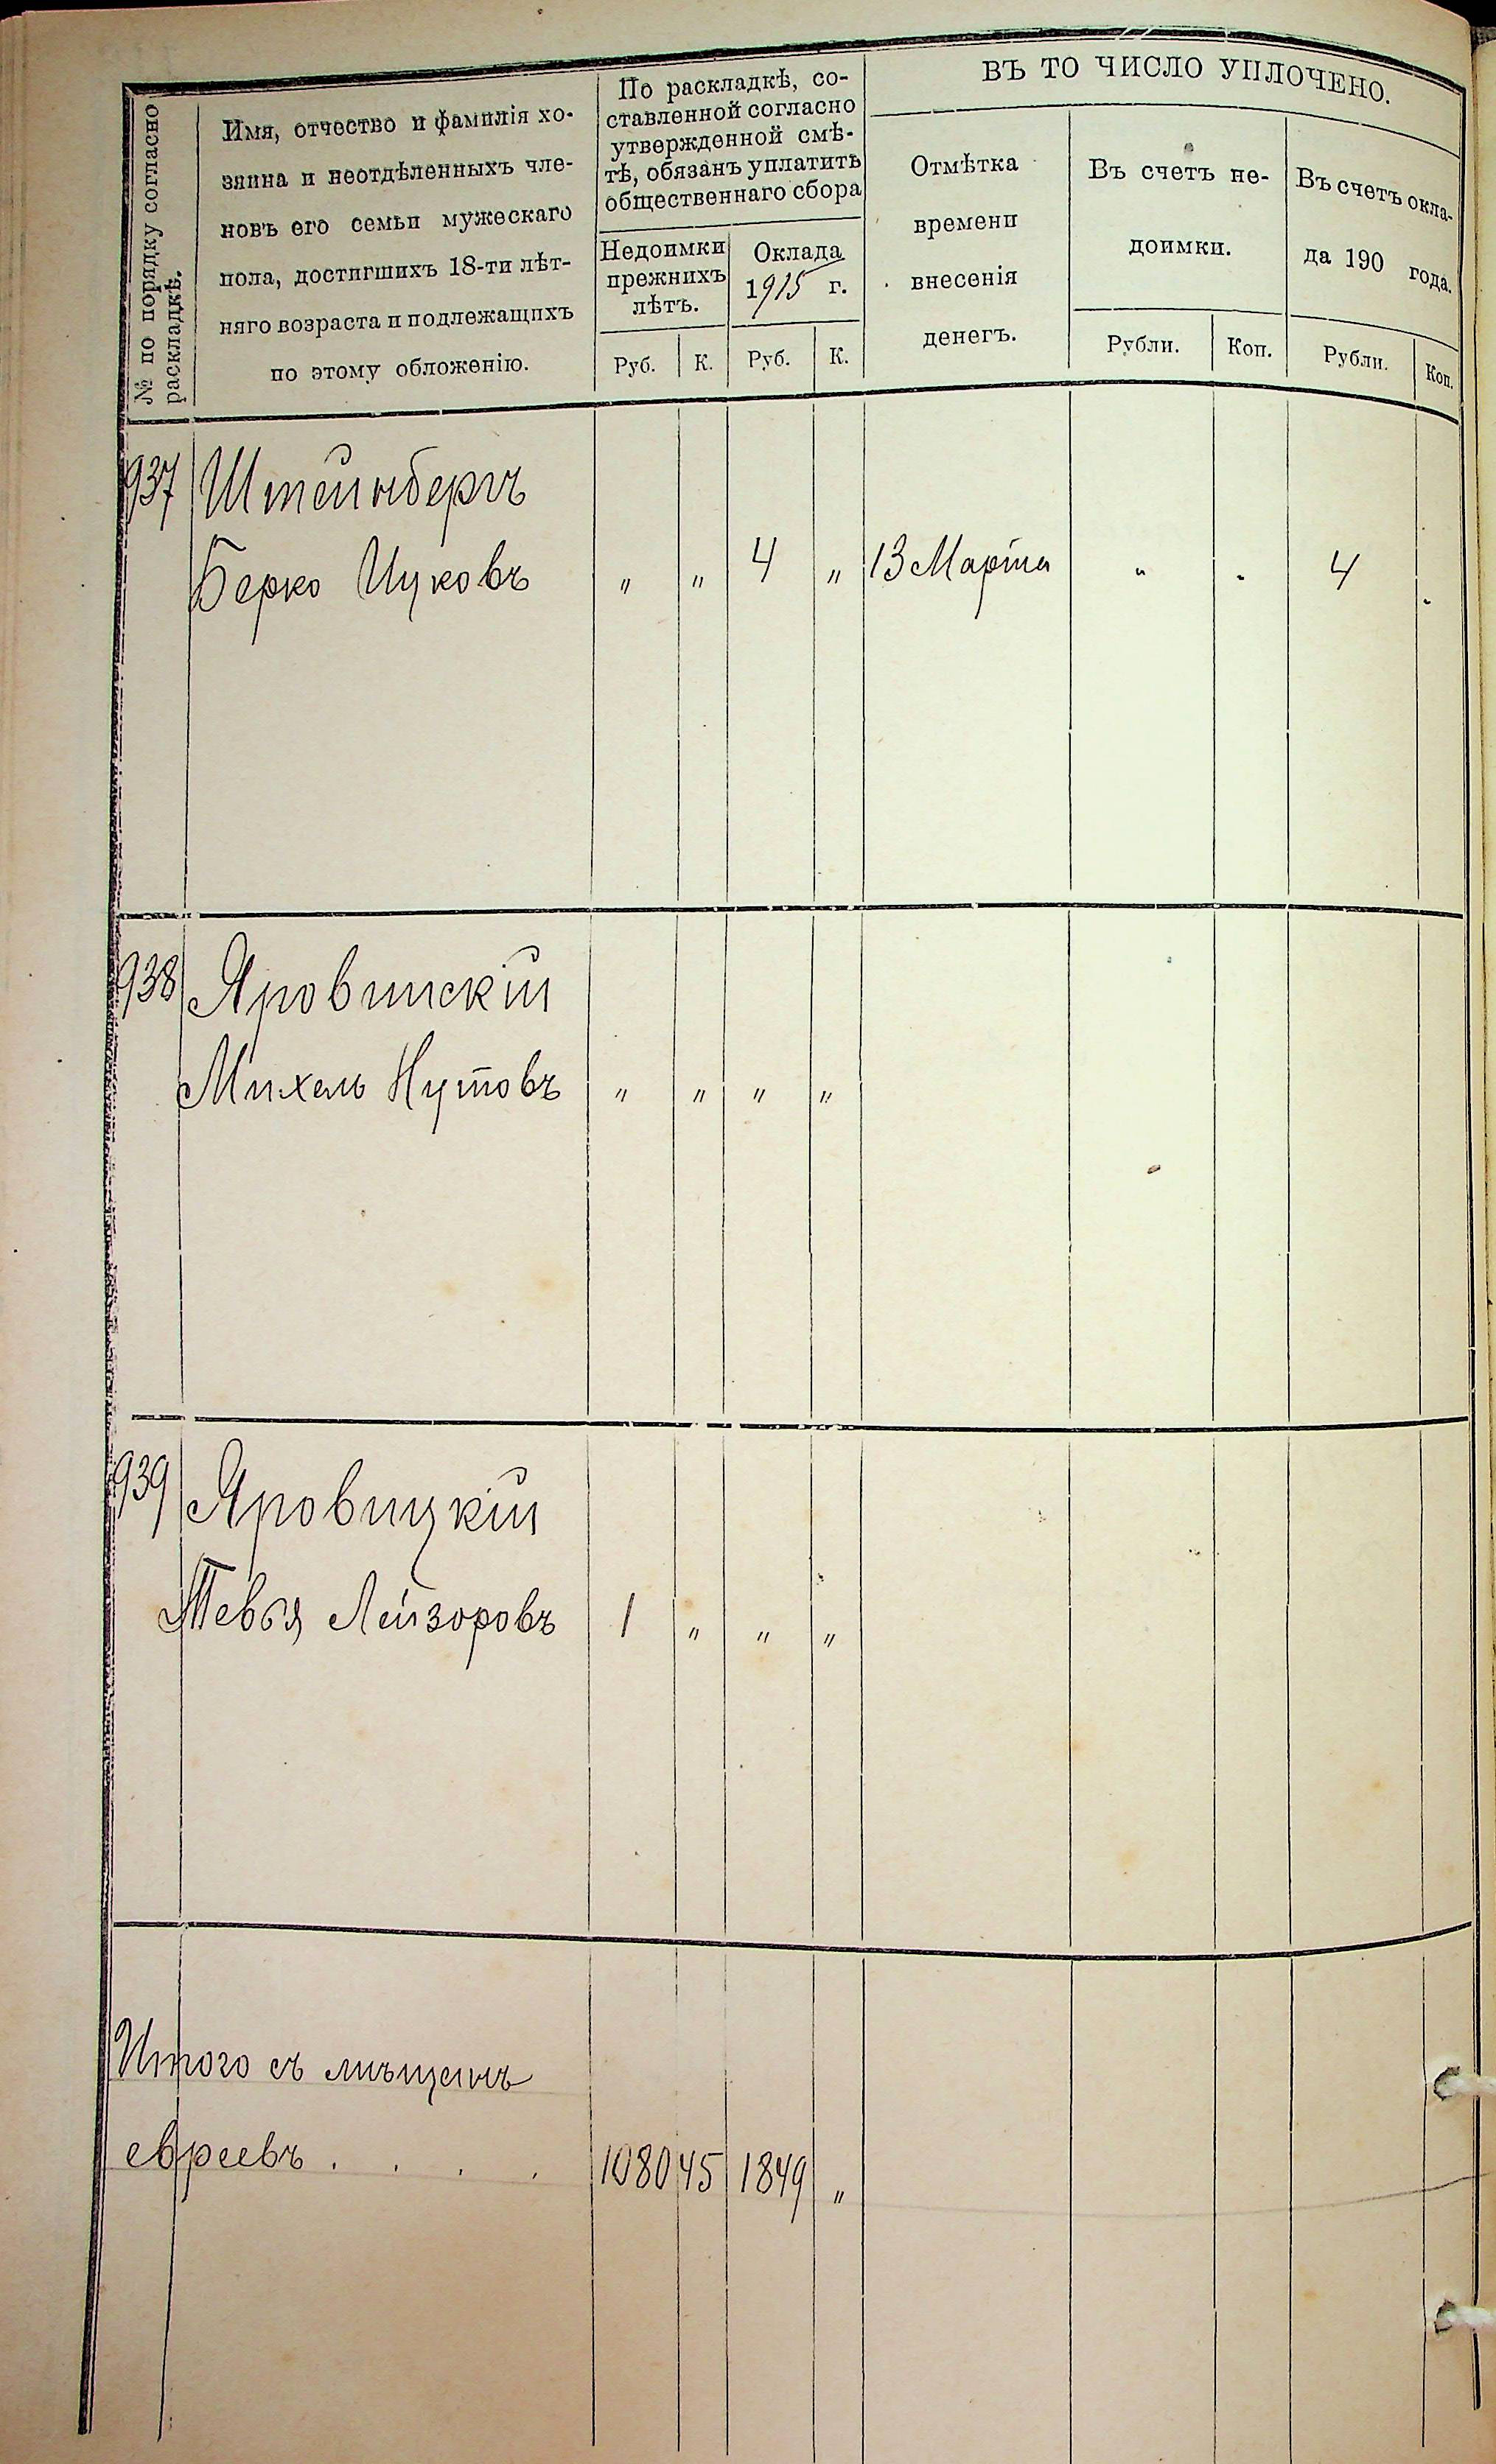 № по порядку согласно
раскладкѣ.
Имя, отчество и фамилія хо-
зяина и неотдѣленныхъ чле-
новъ его семьи мужескаго
пола, достигшихъ 18-ти лѣт-
няго возраста и подлежащихъ
по этому обложенію.
По раскладкѣ, со-
ставленной согласно
утвержденной смѣ-
тѣ, обязанъ уплатить
общественнаго сбора
Недоимки
прежнихъ
лѣтъ.
Руб. К.
Оклада
1915 г.
Руб. К.
ВЪ ТО ЧИСЛО УПЛОЧЕНО.
Отмѣтка
времени
внесенія
денегъ.
Въ счетъ не-
доимки.
Рубли. Коп.
Въ счетъ окла-
да 190 года.
Рубли. Коп.
937 Штейнбергъ
Берко Ицковъ „ „ 4 „ 13 Марта „ . 4 .
938 Яровинскій
Михель Нутовъ „ „ „ „
939 Яровицкій
Тевья Лейзоровъ 1 „ „ „
Итого съ мѣщанъ
евреевъ . . . . 1080 45 1849 „